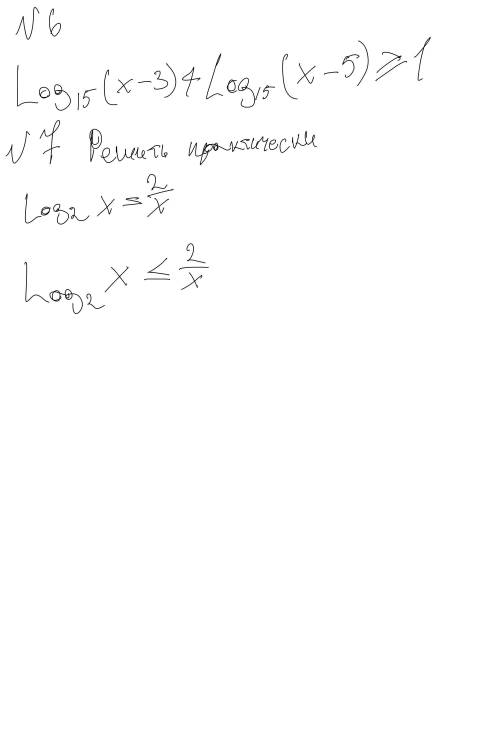 № 6
Log₁₅(x-3)+Log₁₅(x-5)≥1
№ 7 Решить практически
Log₂ x ≤ 2/x
Log₂ x ≤ 2/x